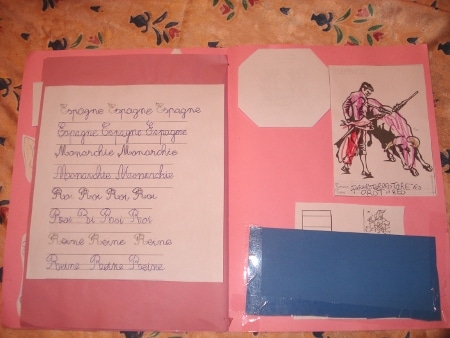 Espagne Espagne Espagne
Espagne Espagne Espagne
Monarchie Monarchie
Monarchie Monarchie
Roi Roi Roi Roi
Roi Roi Roi Roi
Reine Reine Reine
Reine Reine Reine